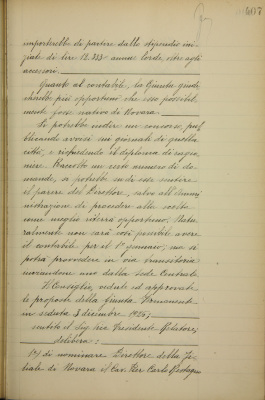 407
importerebbe di partire dallo stipendio ini-
ziale di lire 12.323 annue lorde, oltre agli
accessori.
Quanto al contabile, la Giunta giudi-
cherebbe più opportuno che esso possibil-
mente fosse nativo di Novara.
Si potrebbe indire un concorso, pub-
blicando avvisi sui giornali di quella
città, e richiedendo il diploma di ragio-
niere. Raccolto un certo numero di do-
mande, si potrebbe su di esse sentire
il parere del Direttore, salvo all'Ammi-
nistrazione di procedere alla scelta
come meglio riterrà opportuno. Natu-
ralmente non sarà così possibile avere
il contabile per il 1° gennaio, ma si
potrà provvedere in via transitoria
mandando uno dalla Sede Centrale.
Il Consiglio, vedute ed approvate
le proposte della Giunta Permanente
in seduta 3 dicembre 1926;
sentito il Sig. Vice Presidente Relatore;
delibera:
di nominare Direttore della Fi-
liale di Novara il Cav. Rag. Carlo